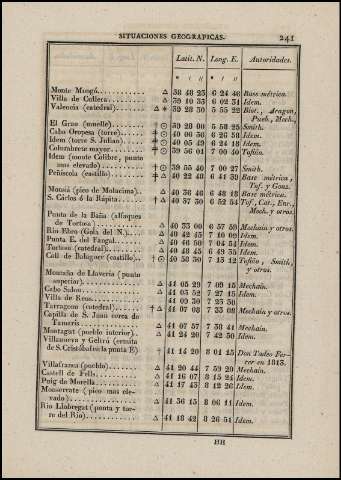 SITUACIONES GEOGRAFICAS. 241
Latit. N. Long. E. Autoridades.
° ' " ° ' "
Monte Mongó.......... △ 38 48 23 6 24 46 Base métrica.
Villa de Cullera.......... △ 39 10 33 6 02 31 Idem.
Valencia (catedral)....... △ ✶ 39 28 30 5 55 22 Biot, Aragon,
Pueb., Mech.,
El Grao (muelle)......... ☉ 39 28 00 5 58 25 Smith.
Cabo Oropesa (torre)..... ☉ 40 06 36 6 26 38 Idem.
Idem (torre S. Julian).... ☉ 40 05 49 6 24 18 Idem.
Columbrete mayor....... ☉ 39 56 01 7 00 40 Tofiño.
Idem (monte Colibre, punto
mas elevado).......... ☉ 39 55 40 7 00 27 Smith.
Peñíscola (castillo)....... △ 40 22 40 6 41 39 Base métrica,
Tof. y Gonz.
Montsiá (pico de Molacima). 40 36 46 6 48 18 Base métrica.
S. Cárlos ó la Rápita...... † △ 40 37 30 6 52 54 Tof., Cat., Enc.,
Mech. y otros.
Punta de la Baña (alfaques
de Tortosa)........... 40 33 00 6 57 59 Mechain y otros.
Rio Ebro (Gola del N.)... △ 40 42 45 7 10 09 Idem.
Punta E. del Fangal...... △ 40 46 50 7 04 54 Idem.
Tortosa (catedral)........ △ 40 48 45 6 49 35 Idem.
Coll de Balaguer (castillo).. † ☉ 40 58 30 7 13 12 Tofiño, Smith,
y otros.
Montaña de Llaveria (punto
superior)............. △ 41 05 29 7 09 15 Mechain.
Cabo Salou............. △ 41 03 52 7 27 15 Idem.
Villa de Reus........... 41 09 30 7 23 30
Tarragona (catedral)...... † △ 41 07 08 7 33 08 Mechain y otros.
Capilla de S. Juan cerca de
Tamaris.............. △ 41 07 57 7 38 41 Mechain.
Montagut (pueblo interior).. △ 41 24 20 7 42 50 Idem.
Villanueva y Geltrú (ermita
de S. Cristóbal en la punta E) △ 41 14 20 8 01 15 Don Tadeo Fer-
rer en 1813.
Villafranca (pueblo)....... △ 41 20 44 7 59 20 Mechain.
Castell de Fells.......... △ 41 16 07 8 15 24 Idem.
Puig de Morella......... △ 41 17 45 8 12 26 Idem.
Monserrate (pico mas ele-
vado)................ △ 41 36 15 8 06 11 Idem.
Rio Llobregat (punta y tor-
re del Rio)........... △ 41 18 42 8 26 51 Idem.
HH